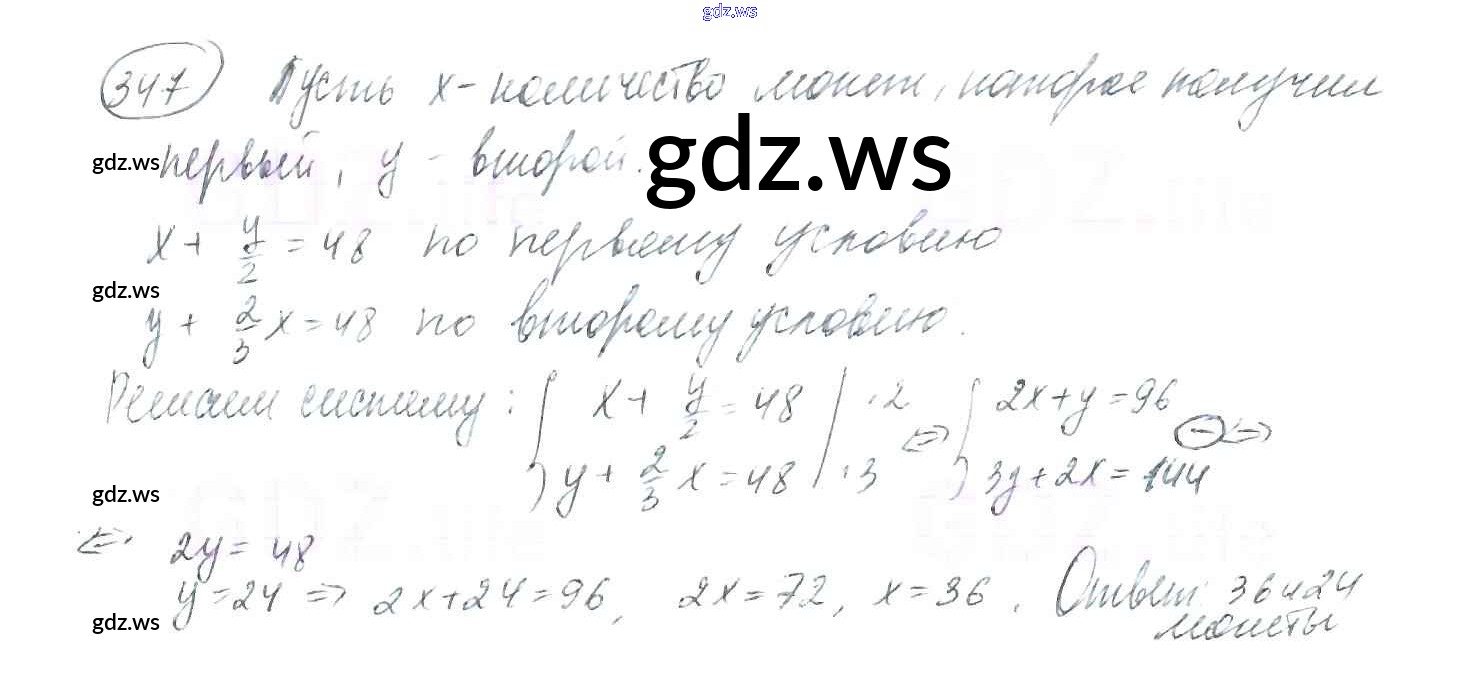 gdz.ws
347 Пусть x - количество монет, которое получил
gdz.ws первый, y - второй. gdz.ws
x + y/2 = 48 по первому условию
gdz.ws
y + 2/3 x = 48 по второму условию.
Решаем систему: { x + y/2 = 48 | ·2 <=> { 2x + y = 96
y + 2/3 x = 48 | ·3 3y + 2x = 144 (-) <=>
gdz.ws
<=> 2y = 48
y = 24 => 2x + 24 = 96, 2x = 72, x = 36. Ответ: 36 и 24
gdz.ws монеты